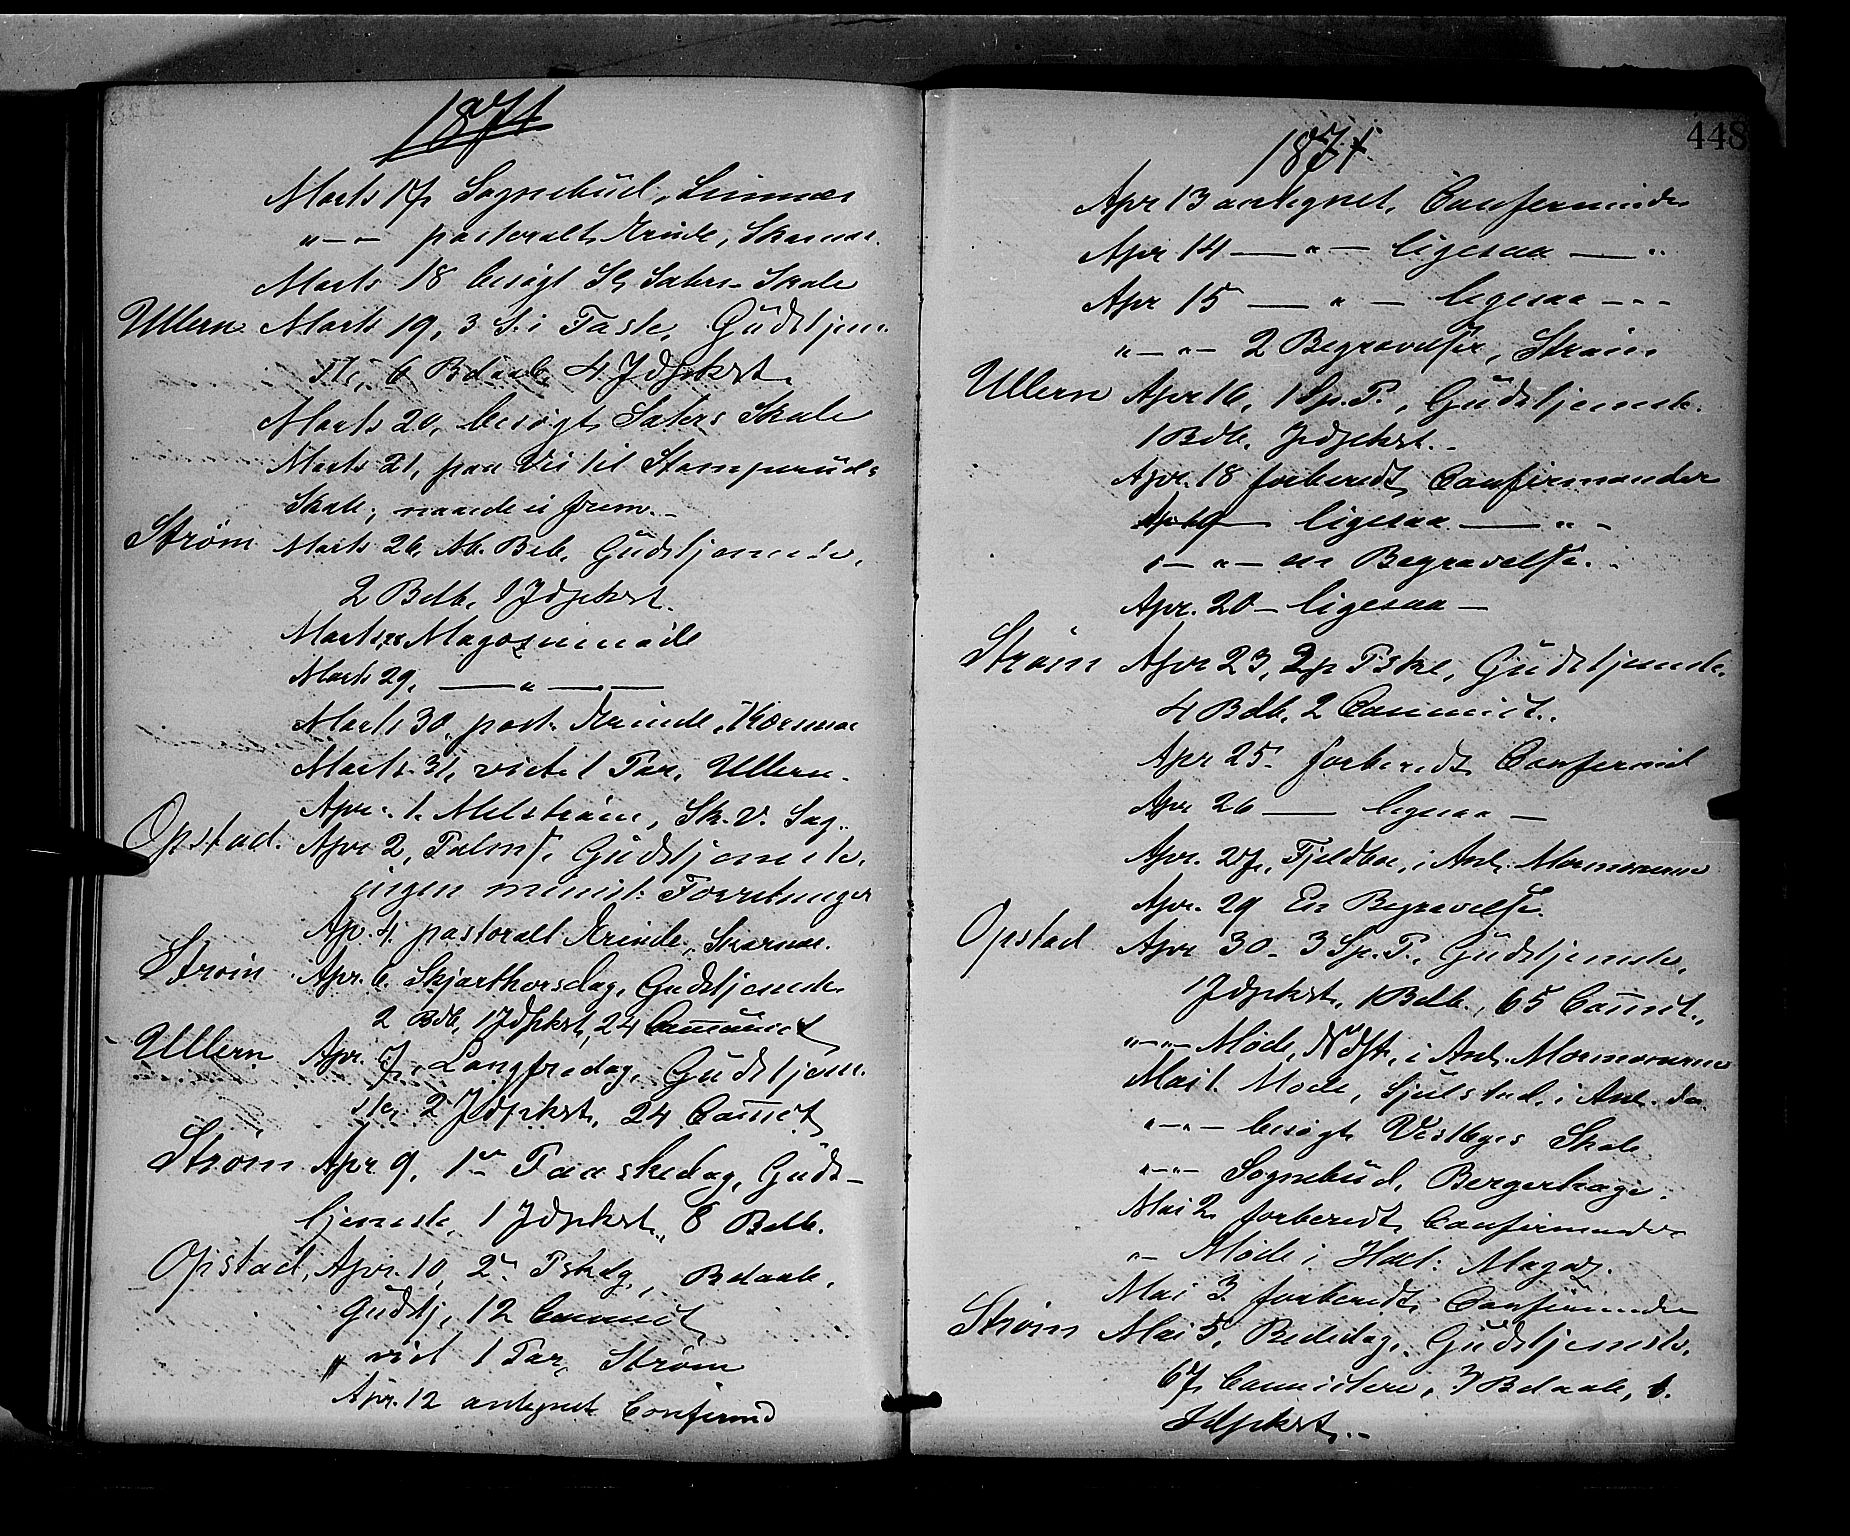 1871
Marts 17, Sognebud, Linnæs
"— — pastoralt Ærinde, Skarnæs.
Marts 18 besøgt Sæters Skole
Ullern Marts 19, 3 S. i Faste, Gudstjene-
ste, 6 Bdaab, 4 Jdpkst.
Marts 20, besøgt Sæters Skole
Marts 21, paa Vei til Stomperuds
Skole, naaede ei frem.—
Strøm Marts 26, M. Beb. Gudstjeneste,
2 Bdb. 1 Jdpkst.
Marts Magazinmøde
Marts 29, — " —
Marts 30, past. Ærinde, Kærnæs
Marts 31, viet 1 Par, Ullern.
Apr. 1. Milstrøm, Sk. V. Sag.
Opstad. Apr 2, Palms. Gudstjeneste,
ingen minist. Forretninger
Ap. 4. pastoralt Ærinde, Skarnæs.
Strøm Apr. 6. Skjærthorsdag, Gudstjeneste
2 Bdb, 1 Jdpkst, 24 Communict
Ullern Apr. 7, Langfredag, Gudstjene-
ste, 2 Jdpkst, 24 Com̄ct
Strøm Apr 9, 1ste Paaskedag, Guds-
tjeneste, 1 Jdpkst, 8 Bdb.
Opstad, Apr. 10, 2n Pskdg, Bdaab,
Gudstj, 12 Communict,
" viet 1 Par, Strøm
Apr. 12 antegnet Confirmd
448
1871
Apr 13 antegnet Confirmander
Apr 14 — " — ligesaa — "
Apr 15 — " — ligesaa — -
"—"— 2 Begravelser, Strøm
Ullern Apr 16, 1 Sp. P., Gudstjeneste.
1 Bdb, Jdpkst.
Apr. 18 forberedt Confirmander
Apr 19 — ligesaa — " -
"—"— en Begravelse.
Apr. 20 — ligesaa —
Strøm Apr 23, 2 p Pske, Gudstjeneste.
4 Bdb, 2 Communict.
Apr 25 forberedt Confirmd
Apr 26 — ligesaa —
Apr. 27, Fjeldboe, i Anl. Mormonerne
Apr. 29 En Begravelse.
Opstad Apr 30 - 3 Sp. P., Gudstjeneste,
1 Jdpkst, 1 Bdb., 65 Com̄ct.,
"—"— Møde, i Anl. Mormonerne
Mai 1. Møde, Sjulstad, i Anl. do
"—"— besøgt Vestbyes Skole
"—"— Sognebud, Bergerhage.
Mai 2 forberedt Confirmander
"— Møde i Magaz.
Mai 3 forberedt Confirmander
Strøm Mai 5, Bededag, Gudstjeneste,
67 Communictere, 3 Bdaab, 1.
Jdpkst.—